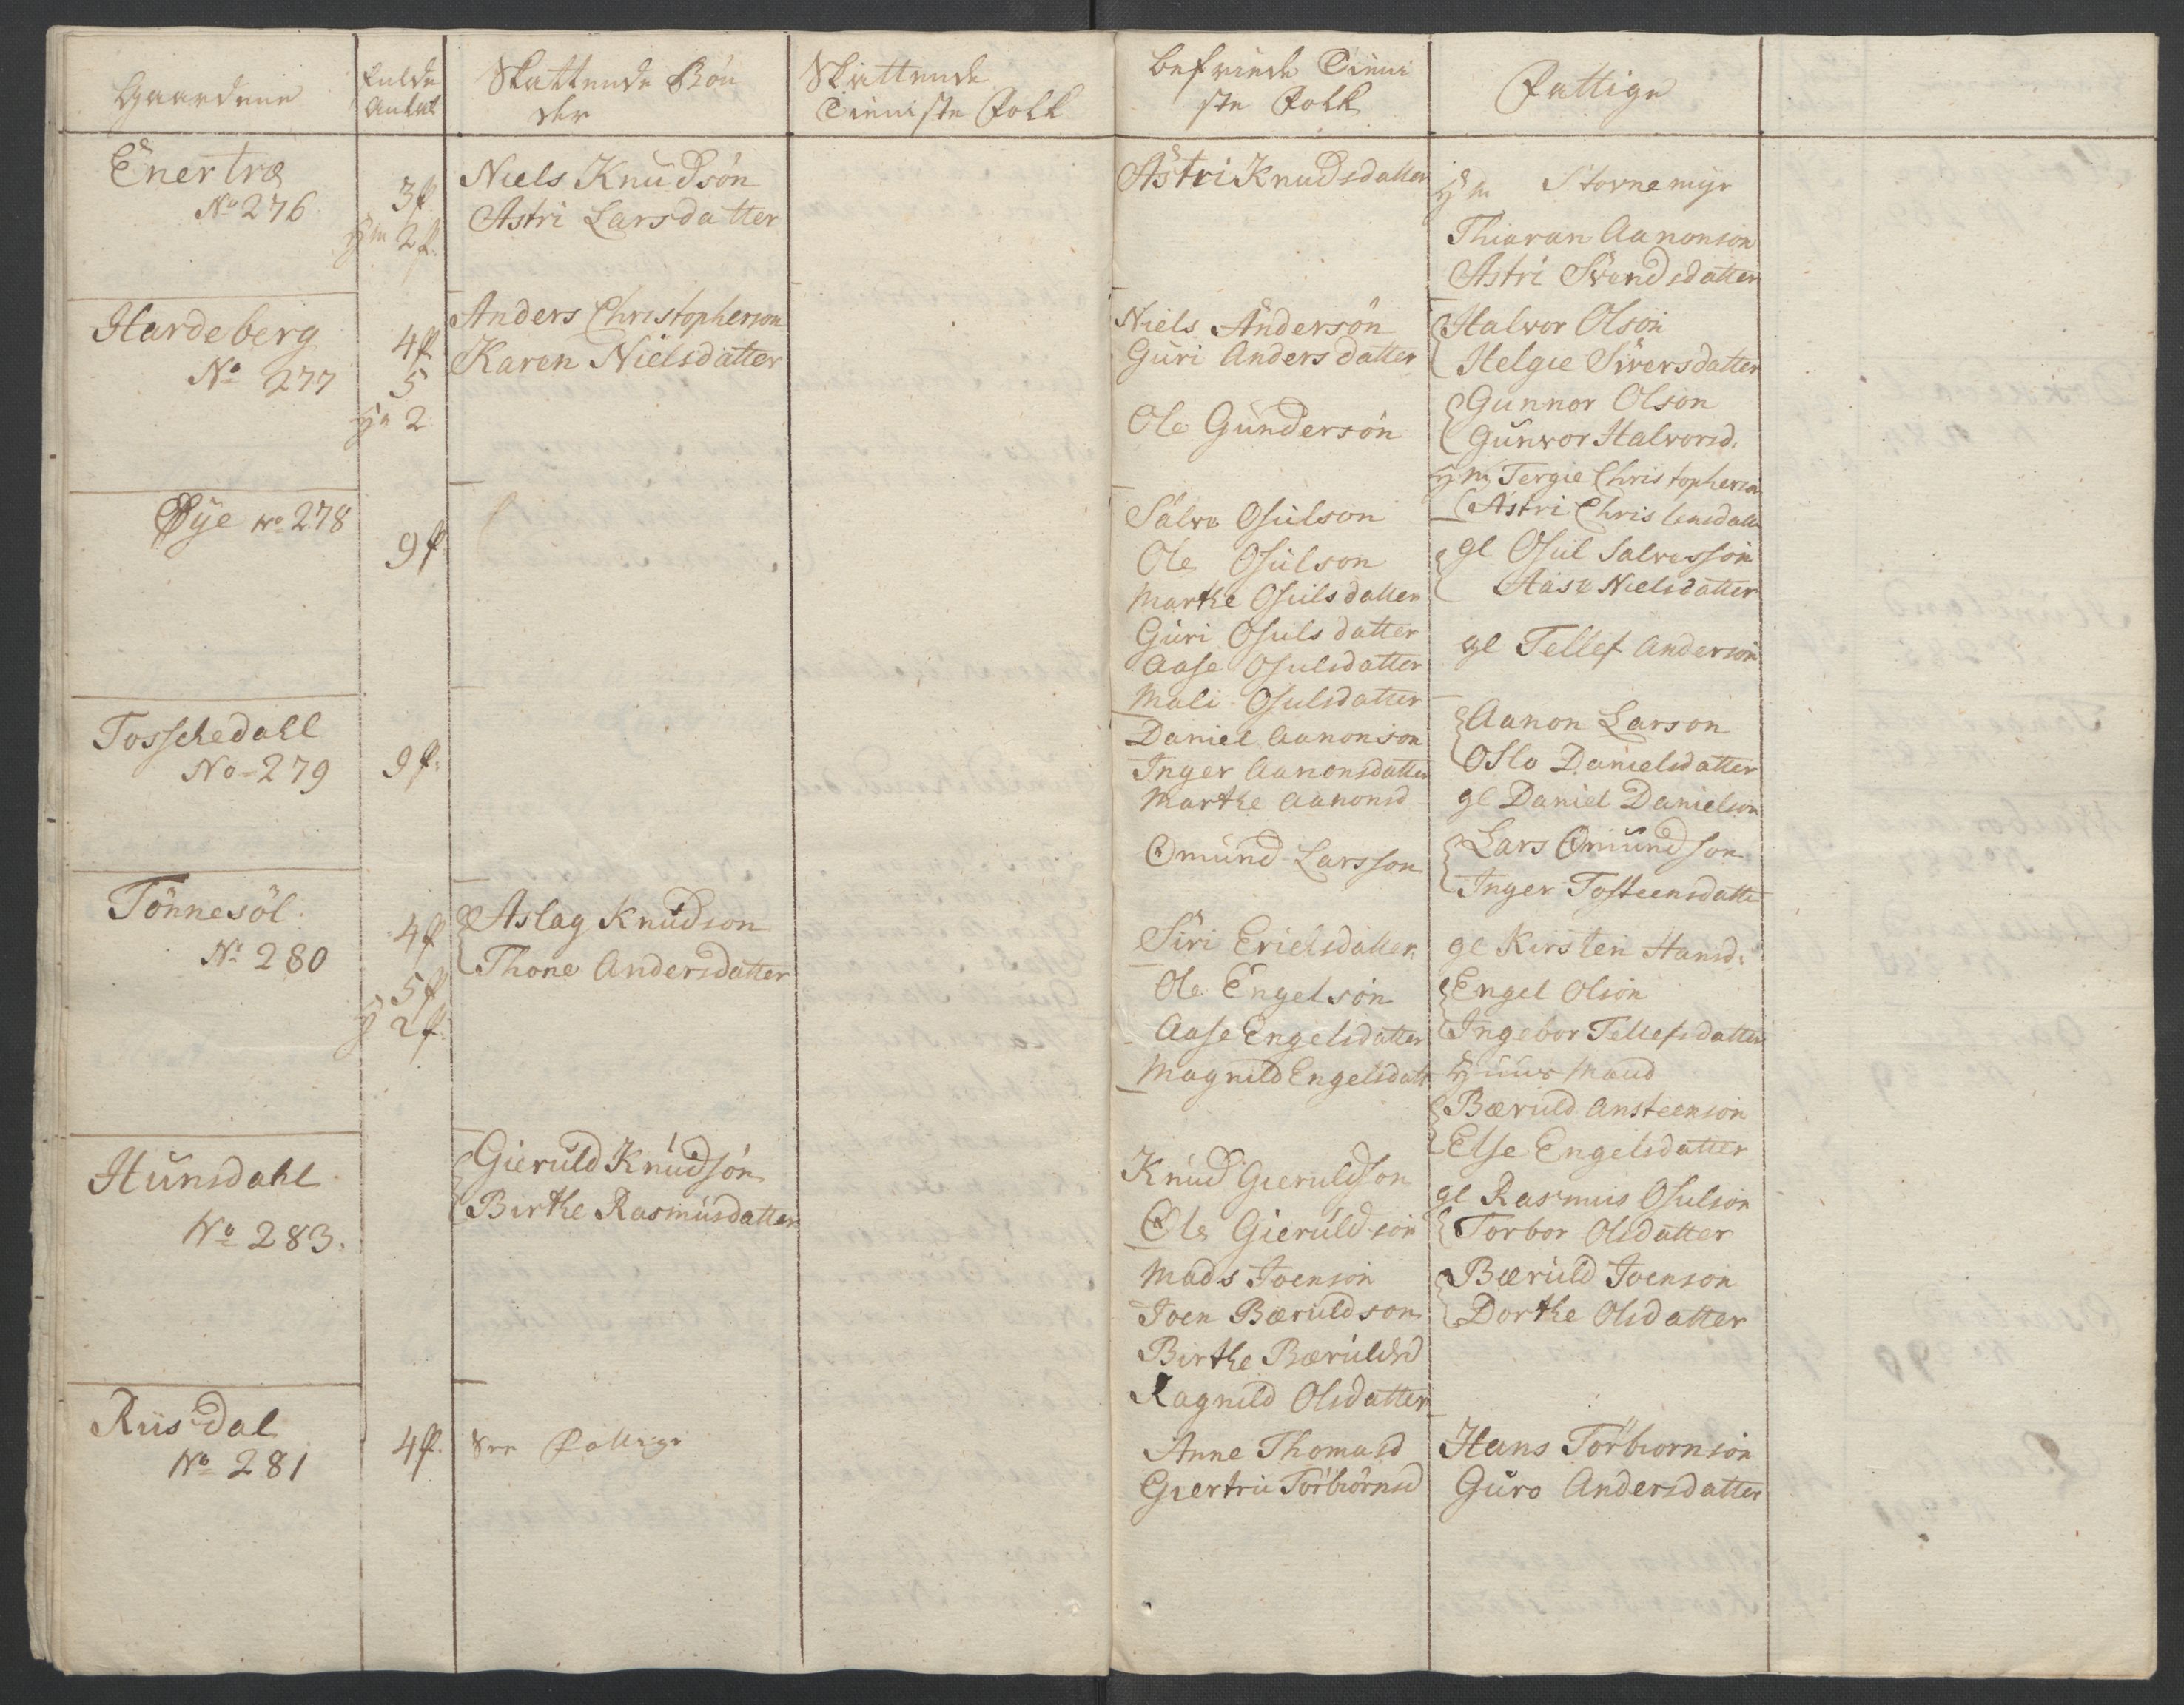 Gaardene
Fulde
Antal
Skattende Bøn
der
Skattende
Tieniste Folk
befriede Tieni
ste Folk
Fattige
Enertræ
No 276
3 f
Hm 2 f.
Niels Knudsøn
Astri Larsdatter
Astri Knudsdatter
Hm Stornemyr
Thiaran Aanonson
Astri Svendsdatter
Hardeberg
No 277
4 f
5
Hm 2
Anders Christopherson
Karen Nielsdatter
Niels Andersøn
Guri Andersdatter
Ole Gundersøn
Halvor Olson
Helgie Siversdatter
Gunnor Olson
Gunvor Halvorsd:
Hm Tergie Christopherson
Astri Christensdatter
Øye No 278
9 f
Salve Osulson
Ole Osulson
Marthe Osulsdatter
Guri Osulsdatter
Aase Osulsdatter
Mali Osulsdatter
gl Osul Salvesson
Aase Nielsdatter
gl Tellef Anderson
Tosschedahl
No 279
9 f.
Daniel Aanonson
Inger Aanonsdatter
Marthe Aanonsd
Omund Larsson
Siri Erielsdatter
Aanon Larson
Oslo Danielsdatter
gl Daniel Danielson
Lars Omundson
Inger Tosteensdatter
gl Kirsten Hansd:
Tønnesøl
No 280
4 f
5 f
H 2 f.
Aslag Knudson
Thone Andersdatter
Ole Engelson
Aase Engelsdatter
Magnild Engelsdatt
Engel Olson
Ingebor Tellefsdatter
Huusmand
Bæruld Ansteenson
Else Engelsdatter
Hunsdahl
No 283.
Gieruld Knudsøn
Birthe Rasmusdatter
Knud Gieruldson
Ole Gieruldson
Mads Joenson
Joen Bæruldson
Birthe Bæruldsd
Ragnild Olsdatter
gl Rasmus Osulson
Torbor Olsdatter
Bæruld Joenson
Dorthe Olsdatter
Riisdal
No 281
4 f.
Anne Thomasd
Giertru Torbiørnsd
Hans Torbiornson
Guro Andersdatter